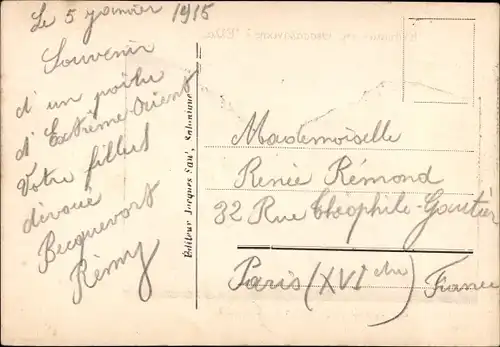 Le 5 janvier 1915
Souvenir
d'un poilu
d'Extrême-Orient
Votre filleul
dévoué
Becquevort
Rémy
Éditeur Jacques Saül, Salonique
Mademoiselle
Renée Rémond
32 Rue Théophile-Gautier
Paris (XVI eme)
France